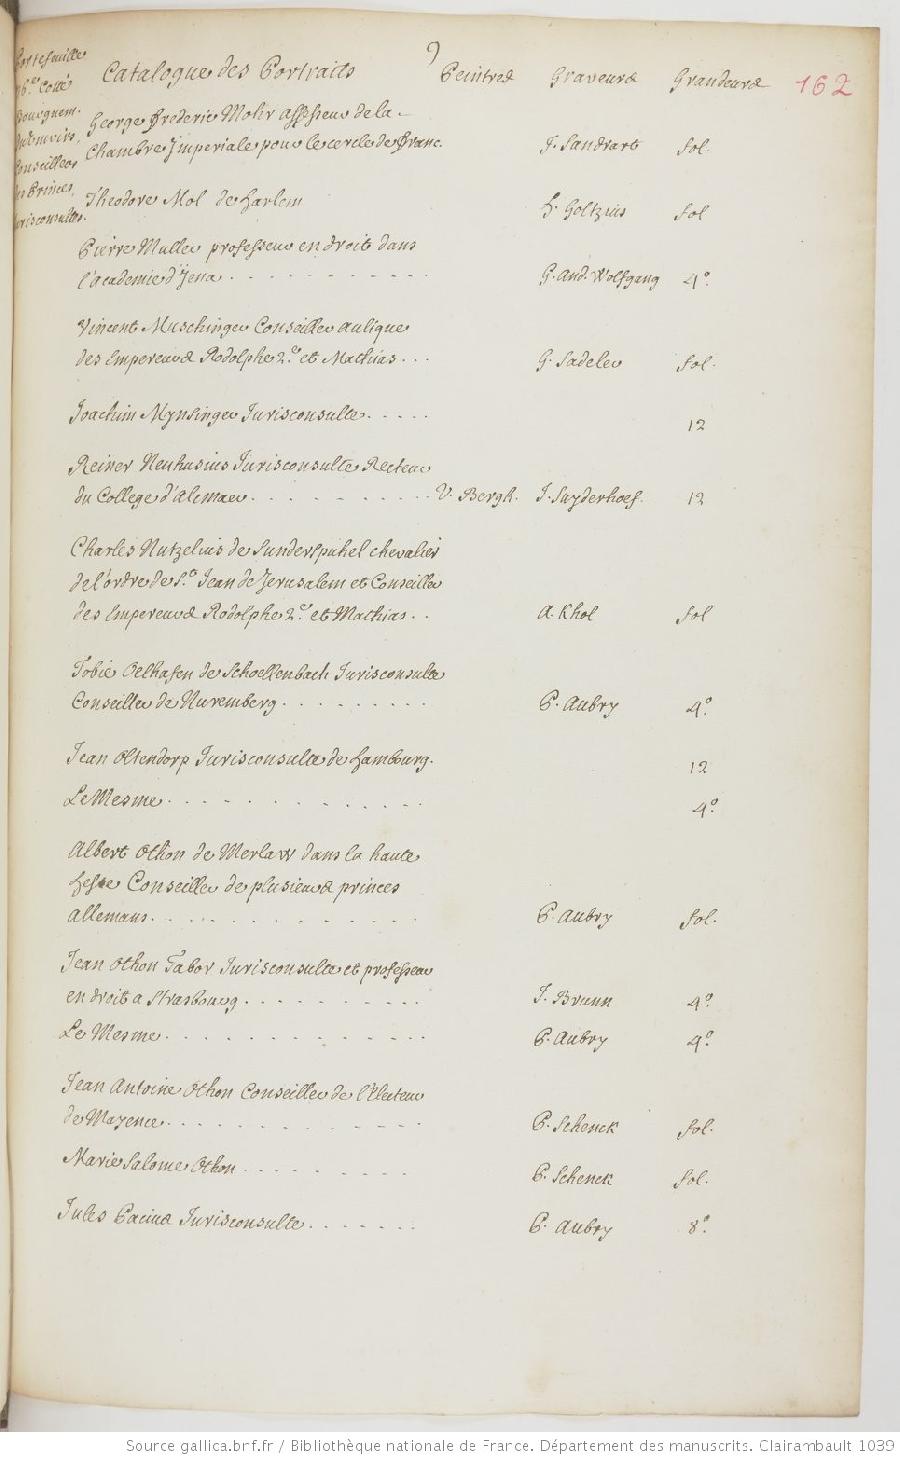 9
Portefeuille Catalogue des Portraits Peintres Graveurs Grandeurs 162
Cotté
Bourguem.
Conseillers
des Princes,
Jurisconsultes.
George Frederic Mohr assesseur de la
Chambre Imperiale pour le cercle de Franc. J. Sandrart fol.
Theodore Mol de harlem h. Goltzius fol
Pierre Muller professeur en droit dans
l'academie d'Jena G. And. Wolfgang 4°.
Vincent Muschinger Conseiller aulique
des Empereurs Rodolphe 2.e et Mathias . . . G. Sadeler fol.
Joachim Mynsinger Jurisconsulte 12
Reiner Neuhusius Jurisconsulte Recteur
du College d'Alcmaer V. Bergh. J. Suyderhoef. 12
Charles Nutzelius de Sunderspuhel chevalier
de l'ordre de S.t Jean de Jerusalem et Conseiller
des Empereurs Rodolphe 2.e et Mathias . . A. Khol fol
Tobie Oelhafen de Schoellenbach Jurisconsulte
Conseiller de Nuremberg P. Aubry 4°.
Jean Oldendorp Jurisconsulte de hambourg. 12
Le Mesme 4°.
Albert Othon de Merlaw dans la haute
hesse Conseiller de plusieurs princes
allemans. P. Aubry fol.
Jean Othon Tabor Jurisconsulte et professeur
en droit a Strasbourg J. Brunn 4°.
Le Mesme P. Aubry 4°.
Jean Antoine Othon Conseiller de l'Electeur
de Mayence P. Schenck fol.
Marie Salome Othon P. Schenck fol.
Jules Pacius Jurisconsulte P. Aubry 8°.
Source gallica.bnf.fr / Bibliothèque nationale de France. Département des manuscrits. Clairambault 1039